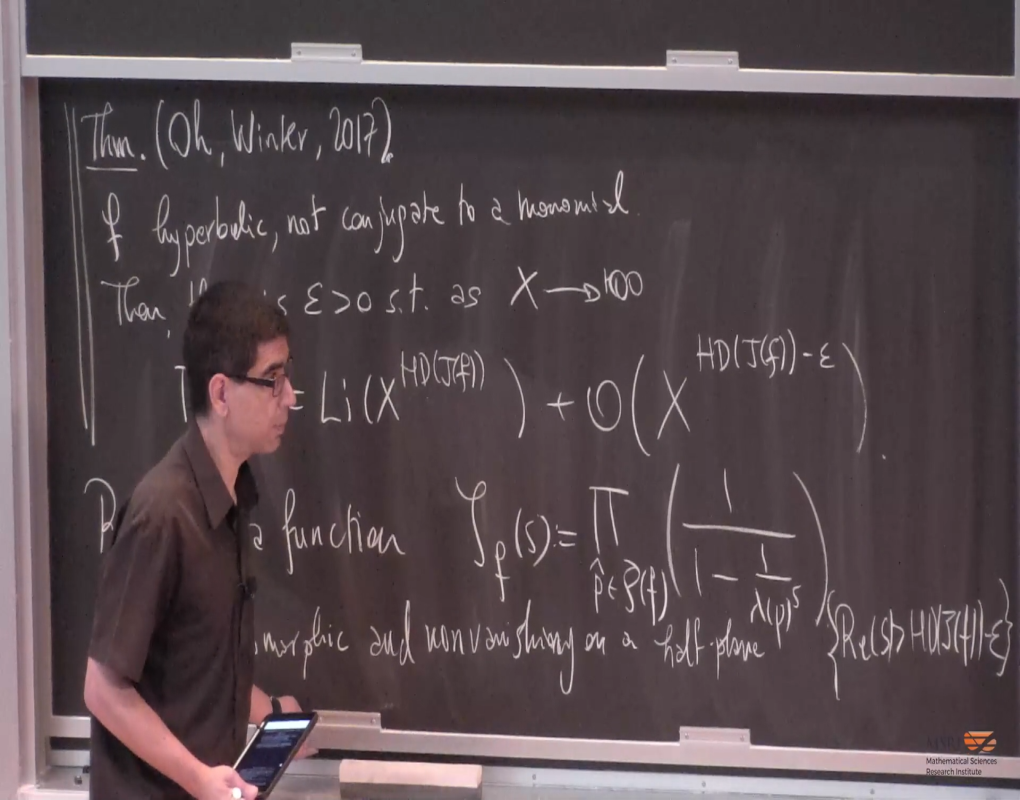 Thm. (Oh, Winter, 2017).
f hyperbolic, not conjugate to a monomial.
Then, ε>0 s.t. as X → +∞
= Li(X^{HD(J(f))}) + O(X^{HD(J(f))-ε}).
a function ζ_f(s) := ∏_{p̂∈𝒫(f)} (1/(1 - 1/λ(p)^s))
and nonvanishing on a half-plane {Re(s)>HD(J(f))-ε}
MSRI
Mathematical Sciences
Research Institute